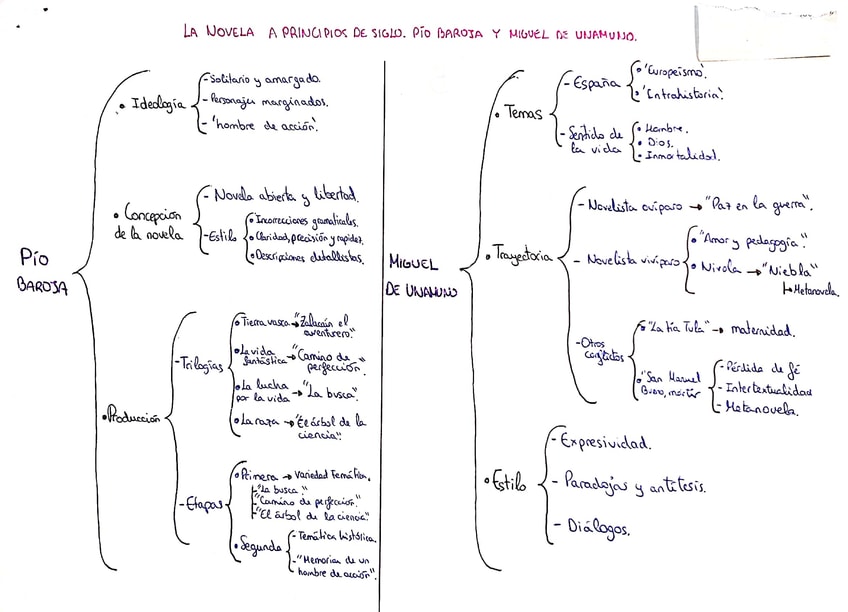 LA NOVELA A PRINCIPIOS DE SIGLO. PÍO BAROJA Y MIGUEL DE UNAMUNO.
PÍO
BAROJA
• Ideología
- Solitario y amargado.
- Personajes marginados.
- 'hombre de acción'.
• Concepción
de la novela
- Novela abierta y libertad.
- Estilo
• Incorrecciones gramaticales.
• Claridad, precisión y rapidez.
• Descripciones detallistas.
• Producción
- Trilogías
• Tierra vasca → "Zalacaín el
aventurero."
• La vida
fantástica → "Camino de
perfección".
• La lucha
por la vida → "La busca".
• La raza → "El árbol de la
ciencia".
- Etapas
• Primera → Variedad temática.
"La busca."
"Camino de perfección."
"El árbol de la ciencia."
• Segunda
- Temática histórica.
- "Memorias de un
hombre de acción".
MIGUEL
DE UNAMUNO
• Temas
- España
• 'Europeísmo'.
• 'Intrahistoria'.
- Sentido de
la vida
• Hombre.
• Dios.
• Inmortalidad.
• Trayectoria
- Novelista ovíparo → "Paz en la guerra".
- Novelista vivíparo
• "Amor y pedagogía".
• Nivola → "Niebla"
↳ Metanovela.
- Otros
conflictos
• "La tía Tula" → maternidad.
• "San Manuel
Bueno, mártir
- Pérdida de fé
- Intertextualidad
- Metanovela.
• Estilo
- Expresividad.
- Paradojas y antítesis.
- Diálogos.